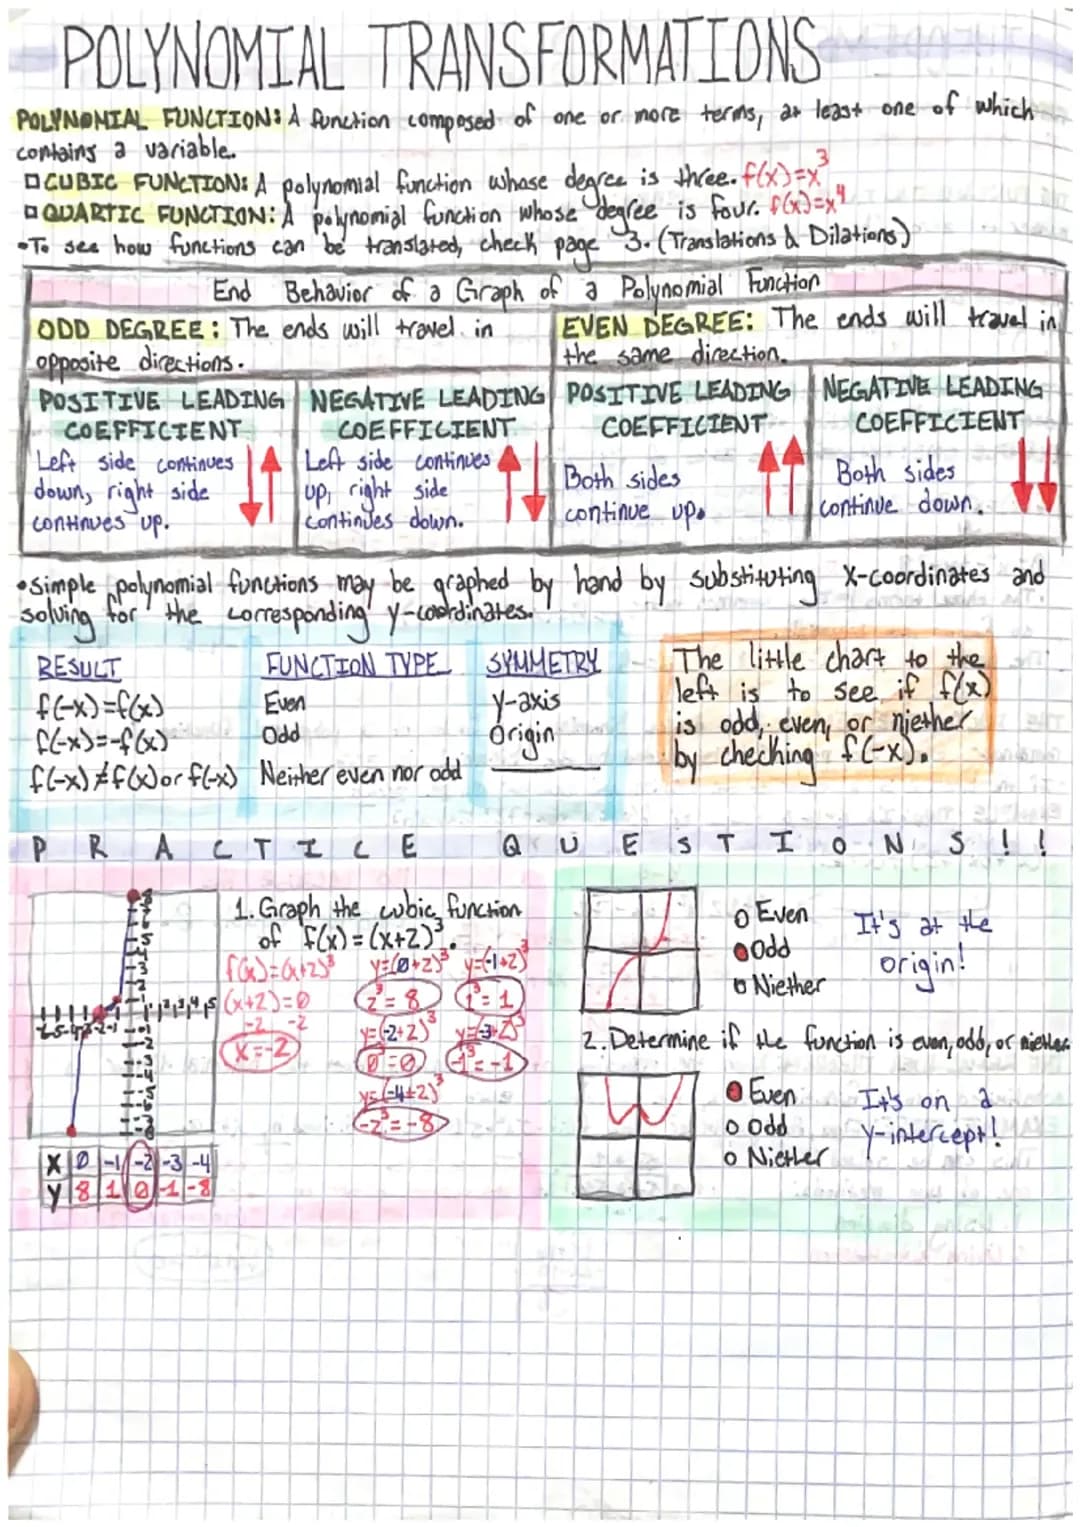 POLYNOMIAL TRANSFORMATIONS
POLYNOMIAL FUNCTION: A function composed of one or more terms, at least one of which
contains a variable.
□ CUBIC FUNCTION: A polynomial function whose degree is three. f(x)=x³
□ QUARTIC FUNCTION: A polynomial function whose degree is four. f(x)=x⁴
•To see how functions can be translated, check page 3. (Translations & Dilations)
End Behavior of a Graph of a Polynomial Function
ODD DEGREE: The ends will travel in
opposite directions.
EVEN DEGREE: The ends will travel in
the same direction.
POSITIVE LEADING
COEFFICIENT
Left side continues
down, right side
continues up.
NEGATIVE LEADING
COEFFICIENT
Left side continues
up, right side
continues down.
POSITIVE LEADING
COEFFICIENT
Both sides
continue up.
NEGATIVE LEADING
COEFFICIENT
Both sides
continue down.
•Simple polynomial functions may be graphed by hand by substituting X-coordinates and
solving for the corresponding y-coordinates.
RESULT FUNCTION TYPE SYMMETRY
f(-x)=f(x) Even y-axis
f(-x)=-f(x) Odd Origin
f(-x)≠f(x) or f(-x) Neither even nor odd
The little chart to the
left is to see if f(x)
is odd, even, or niether
by checking f(-x).
PRACTICE QUESTIONS!!
1. Graph the cubic function
of f(x)=(x+2)³.
f(x)=(x+2)³
(x+2)=0
-2 -2
X=-2
y=(0+2)³
2³=8
y=(-1+2)³
1³=1
y=(-2+2)³
0³=0
y=(-3+2)³
-1³=-1
y=(-4+2)³
-2³=-8
X 0 -1 -2 -3 -4
Y 8 1 0 -1 -8
o Even
Odd
o Niether
It's at the
origin!
2. Determine if the function is even, odd, or niether.
Even
o Odd
o Niether
It's on a
y-intercept!